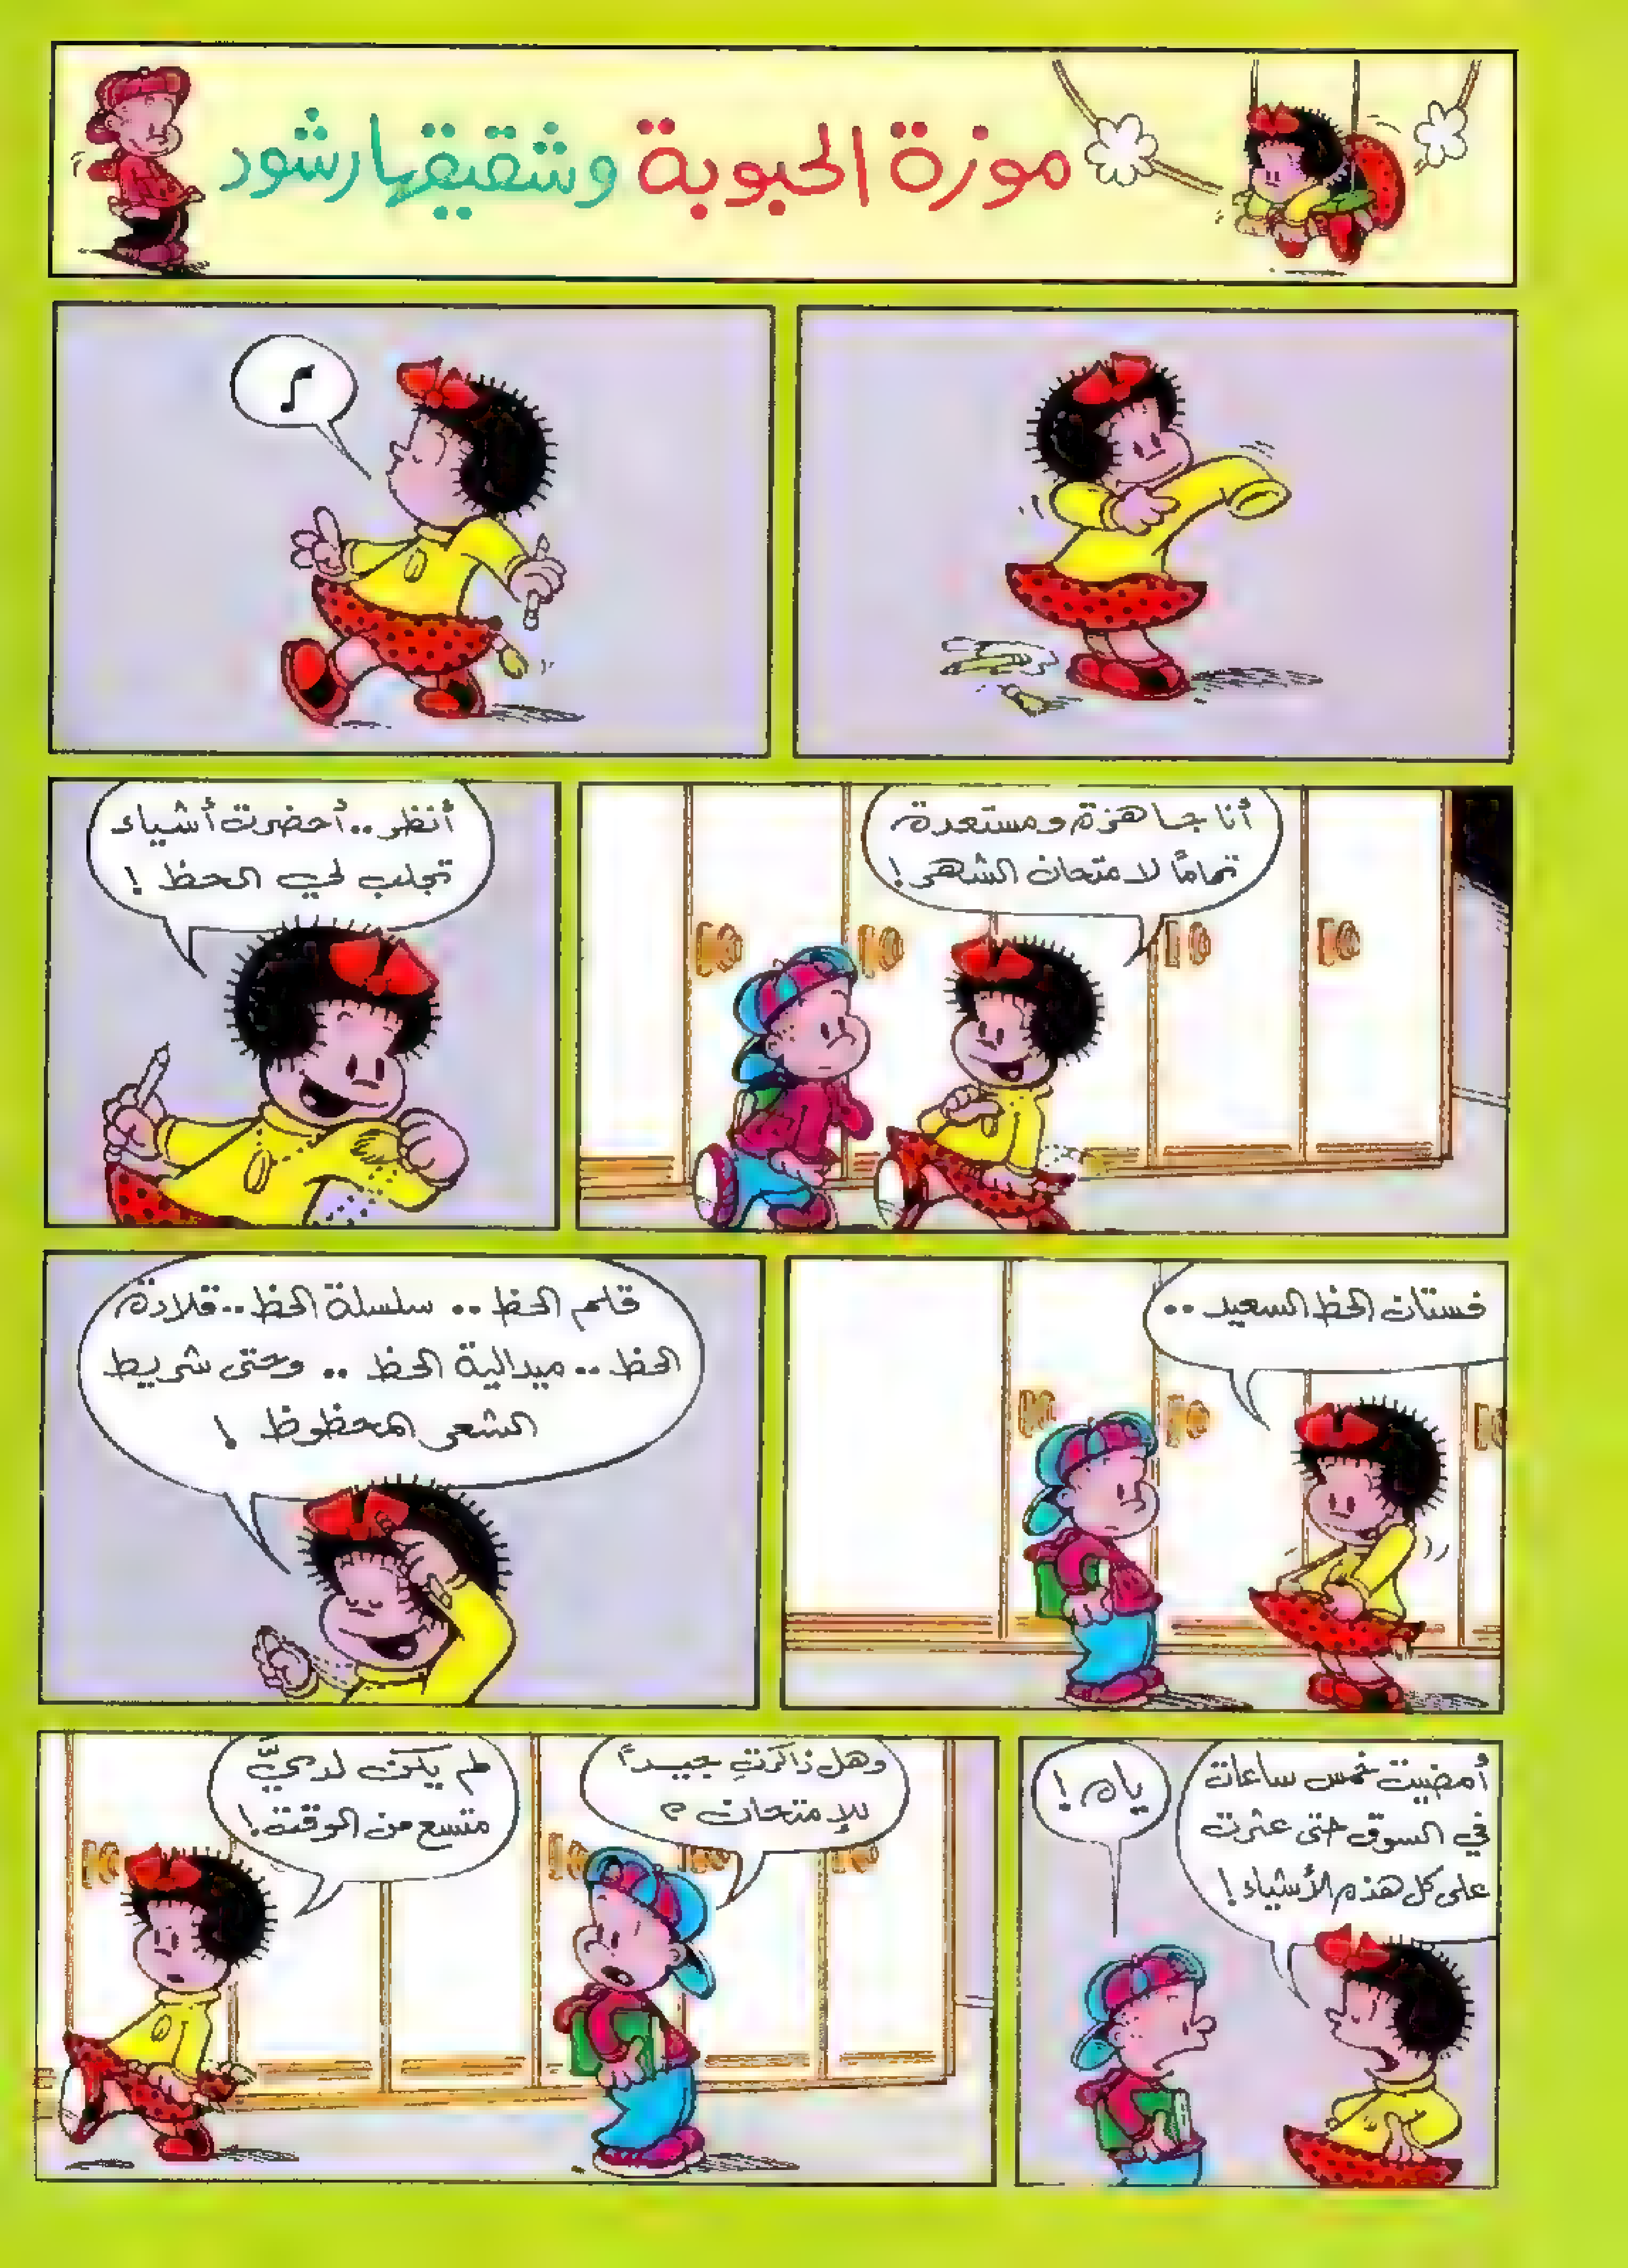 موزة الحبوبة وشقيقها رشود
أنا جاهزة ومستعدة
تمامًا لامتحان الشهر!
أنظر.. أحضرت أشياء
تجلب لي الحظ!
فستان الحظ السعيد..
قلم الحظ.. سلسلة الحظ.. قلادة
الحظ.. ميدالية الحظ.. وحتى شريط
الشعر المحظوظ!
أمضيت خمس ساعات
في السوق حتى عثرت
على كل هذه الأشياء!
ياه!
وهل ذاكرتِ جيداً
للإمتحان؟
لم يكن لديَّ
متسع من الوقت!